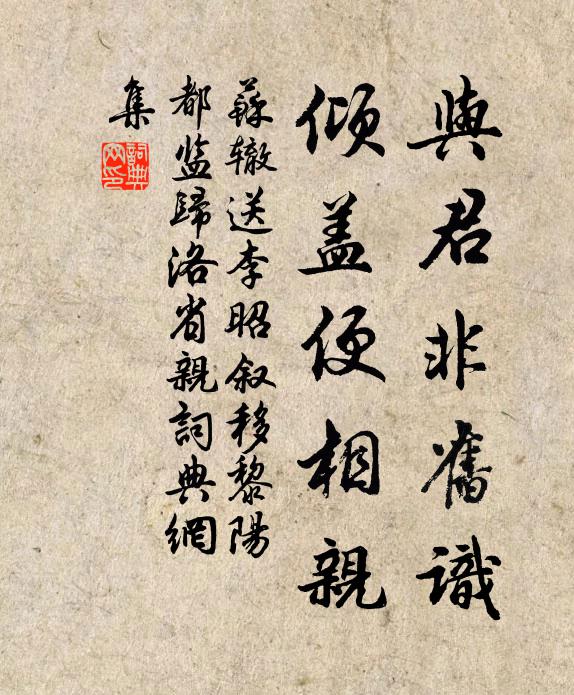 與君非舊識
傾盖便相親
蘇辙送李昭叙移黎陽
都监歸洛省親詞典網
集
詞典
网印